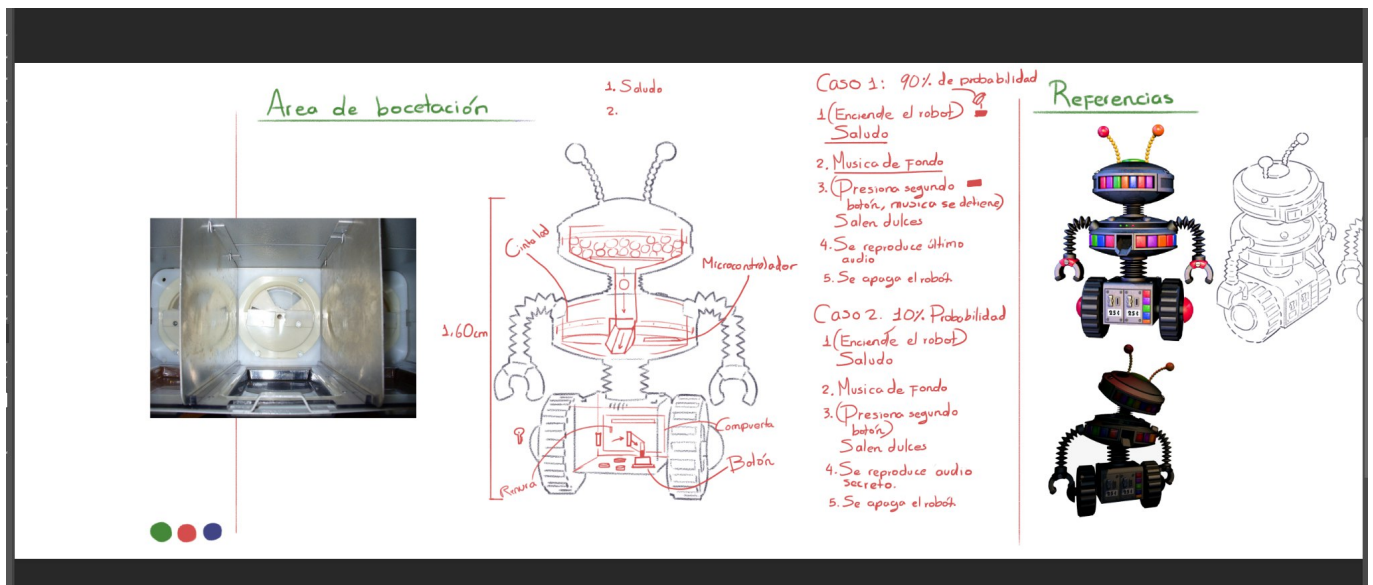 Area de bocetación
1. Saludo
2.
Cinta led
Microcontrolador
1,60cm
Compuerta
Botón
Ranura
Caso 1: 90% de probabilidad
1 (Enciende el robot)
Saludo
2. Musica de Fondo
3. (Presiona segundo
botón, musica se detiene)
Salen dulces
4. Se reproduce último
audio
5. Se apaga el robot
Caso 2. 10% Probabilidad
1 (Enciende el robot)
Saludo
2. Musica de Fondo
3. (Presiona segundo
botón)
Salen dulces
4. Se reproduce audio
secreto.
5. Se apaga el robot
Referencias
25¢ 25¢